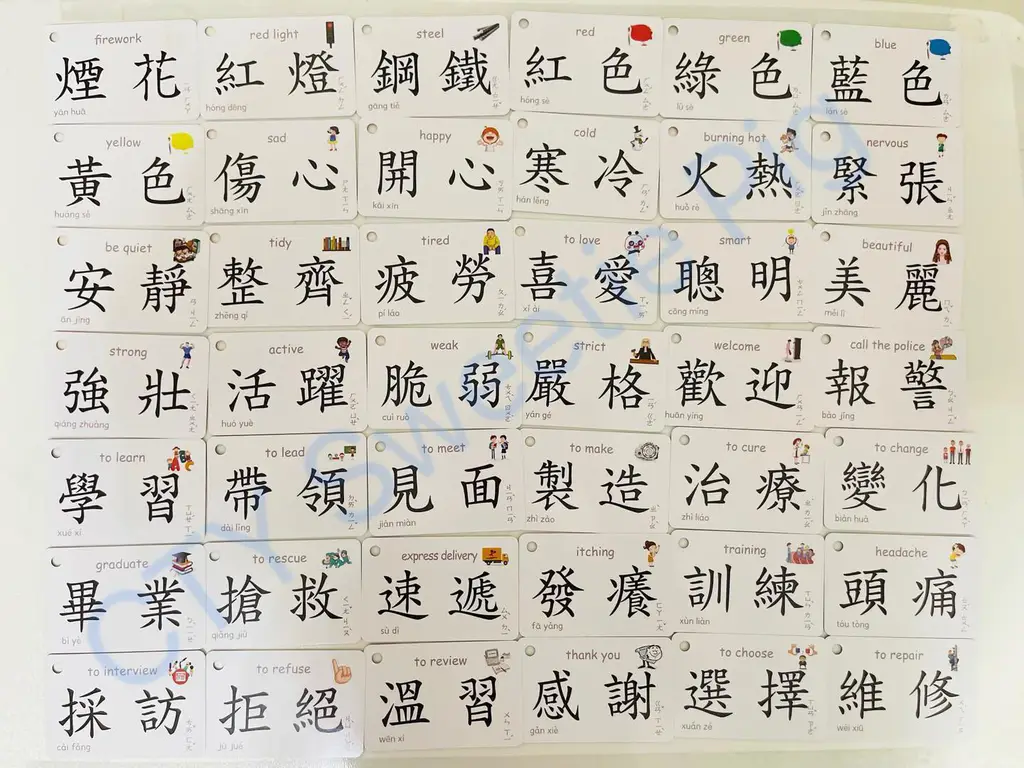 firework
煙花
yān huā
red light
紅燈
hóng dēng
steel
鋼鐵
gāng tiě
red
紅色
hóng sè
green
綠色
lǜ sè
blue
藍色
lán sè
yellow
黃色
huáng sè
sad
傷心
shāng xīn
happy
開心
kāi xīn
cold
寒冷
hán lěng
burning hot
火熱
huǒ rè
nervous
緊張
jǐn zhāng
be quiet
安靜
ān jìng
tidy
整齊
zhěng qí
tired
疲勞
pí láo
to love
喜愛
xǐ ài
smart
聰明
cōng míng
beautiful
美麗
měi lì
strong
強壯
qiáng zhuàng
active
活躍
huó yuè
weak
脆弱
cuì ruò
strict
嚴格
yán gé
welcome
歡迎
huān yíng
call the police
報警
bào jǐng
to learn
學習
xué xí
to lead
帶領
dài lǐng
to meet
見面
jiàn miàn
to make
製造
zhì zào
to cure
治療
zhì liáo
to change
變化
biàn huà
graduate
畢業
bì yè
to rescue
搶救
qiǎng jiù
express delivery
速遞
sù dì
itching
發癢
fā yǎng
training
訓練
xùn liàn
headache
頭痛
tóu tòng
to interview
採訪
cǎi fǎng
to refuse
拒絕
jù jué
to review
溫習
wēn xí
thank you
感謝
gǎn xiè
to choose
選擇
xuǎn zé
to repair
維修
wéi xiū
CTY Sweetie Pig